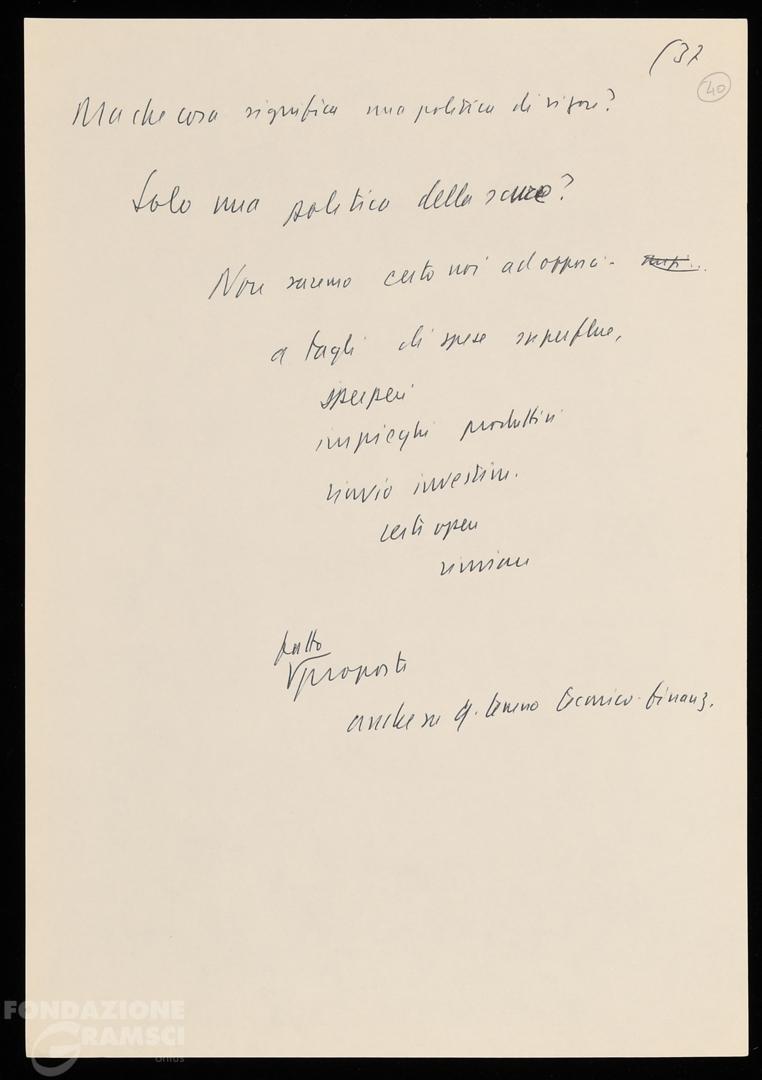 (37
40
Ma che cosa significa una politica di rigore?
Solo una politica della scure?
Non saremo certo noi ad opporci
a tagli di spese superflue,
sperperi
impieghi produttivi
rinvio investim.
certi open
fatto
proposte
anche su q. terreno economico-finanz.
FONDAZIONE
GRAMSCI
onlus